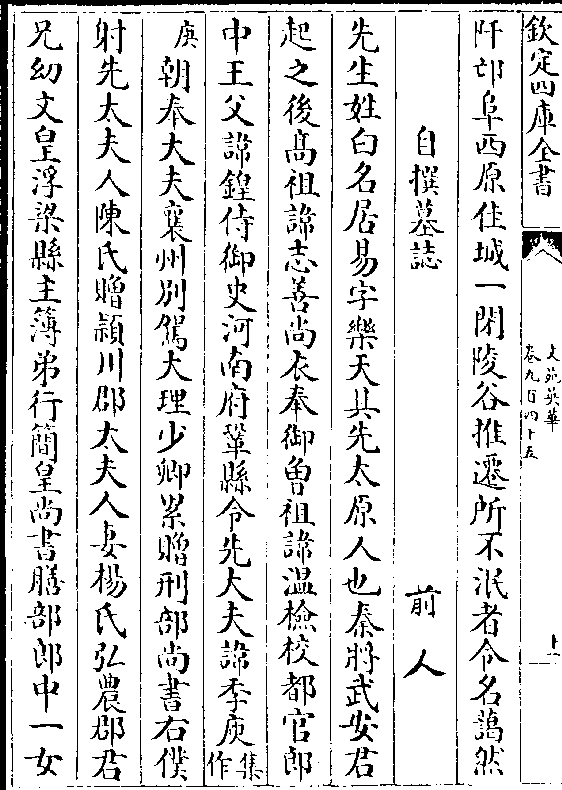 欽定四庫全書
文苑英華
卷九百四十五
十一
阡邙阜西原佳城一閉陵谷推遷所不泯者令名藹然
自撰墓誌
前人
先生姓白名居易字樂天其先太原人也秦將武安君
起之後髙祖諱志善尚衣奉御曽祖諱温檢校都官郎
中王父諱鍠侍御史河南府鞏縣令先大夫諱季庾集作
庚朝奉大夫襄州別駕大理少卿累贈刑部尚書右僕
射先太夫人陳氏贈潁川郡太夫人妻楊氏弘農郡君
兄幼文皇浮梁縣主簿弟行簡皇尚書膳部郎中一女